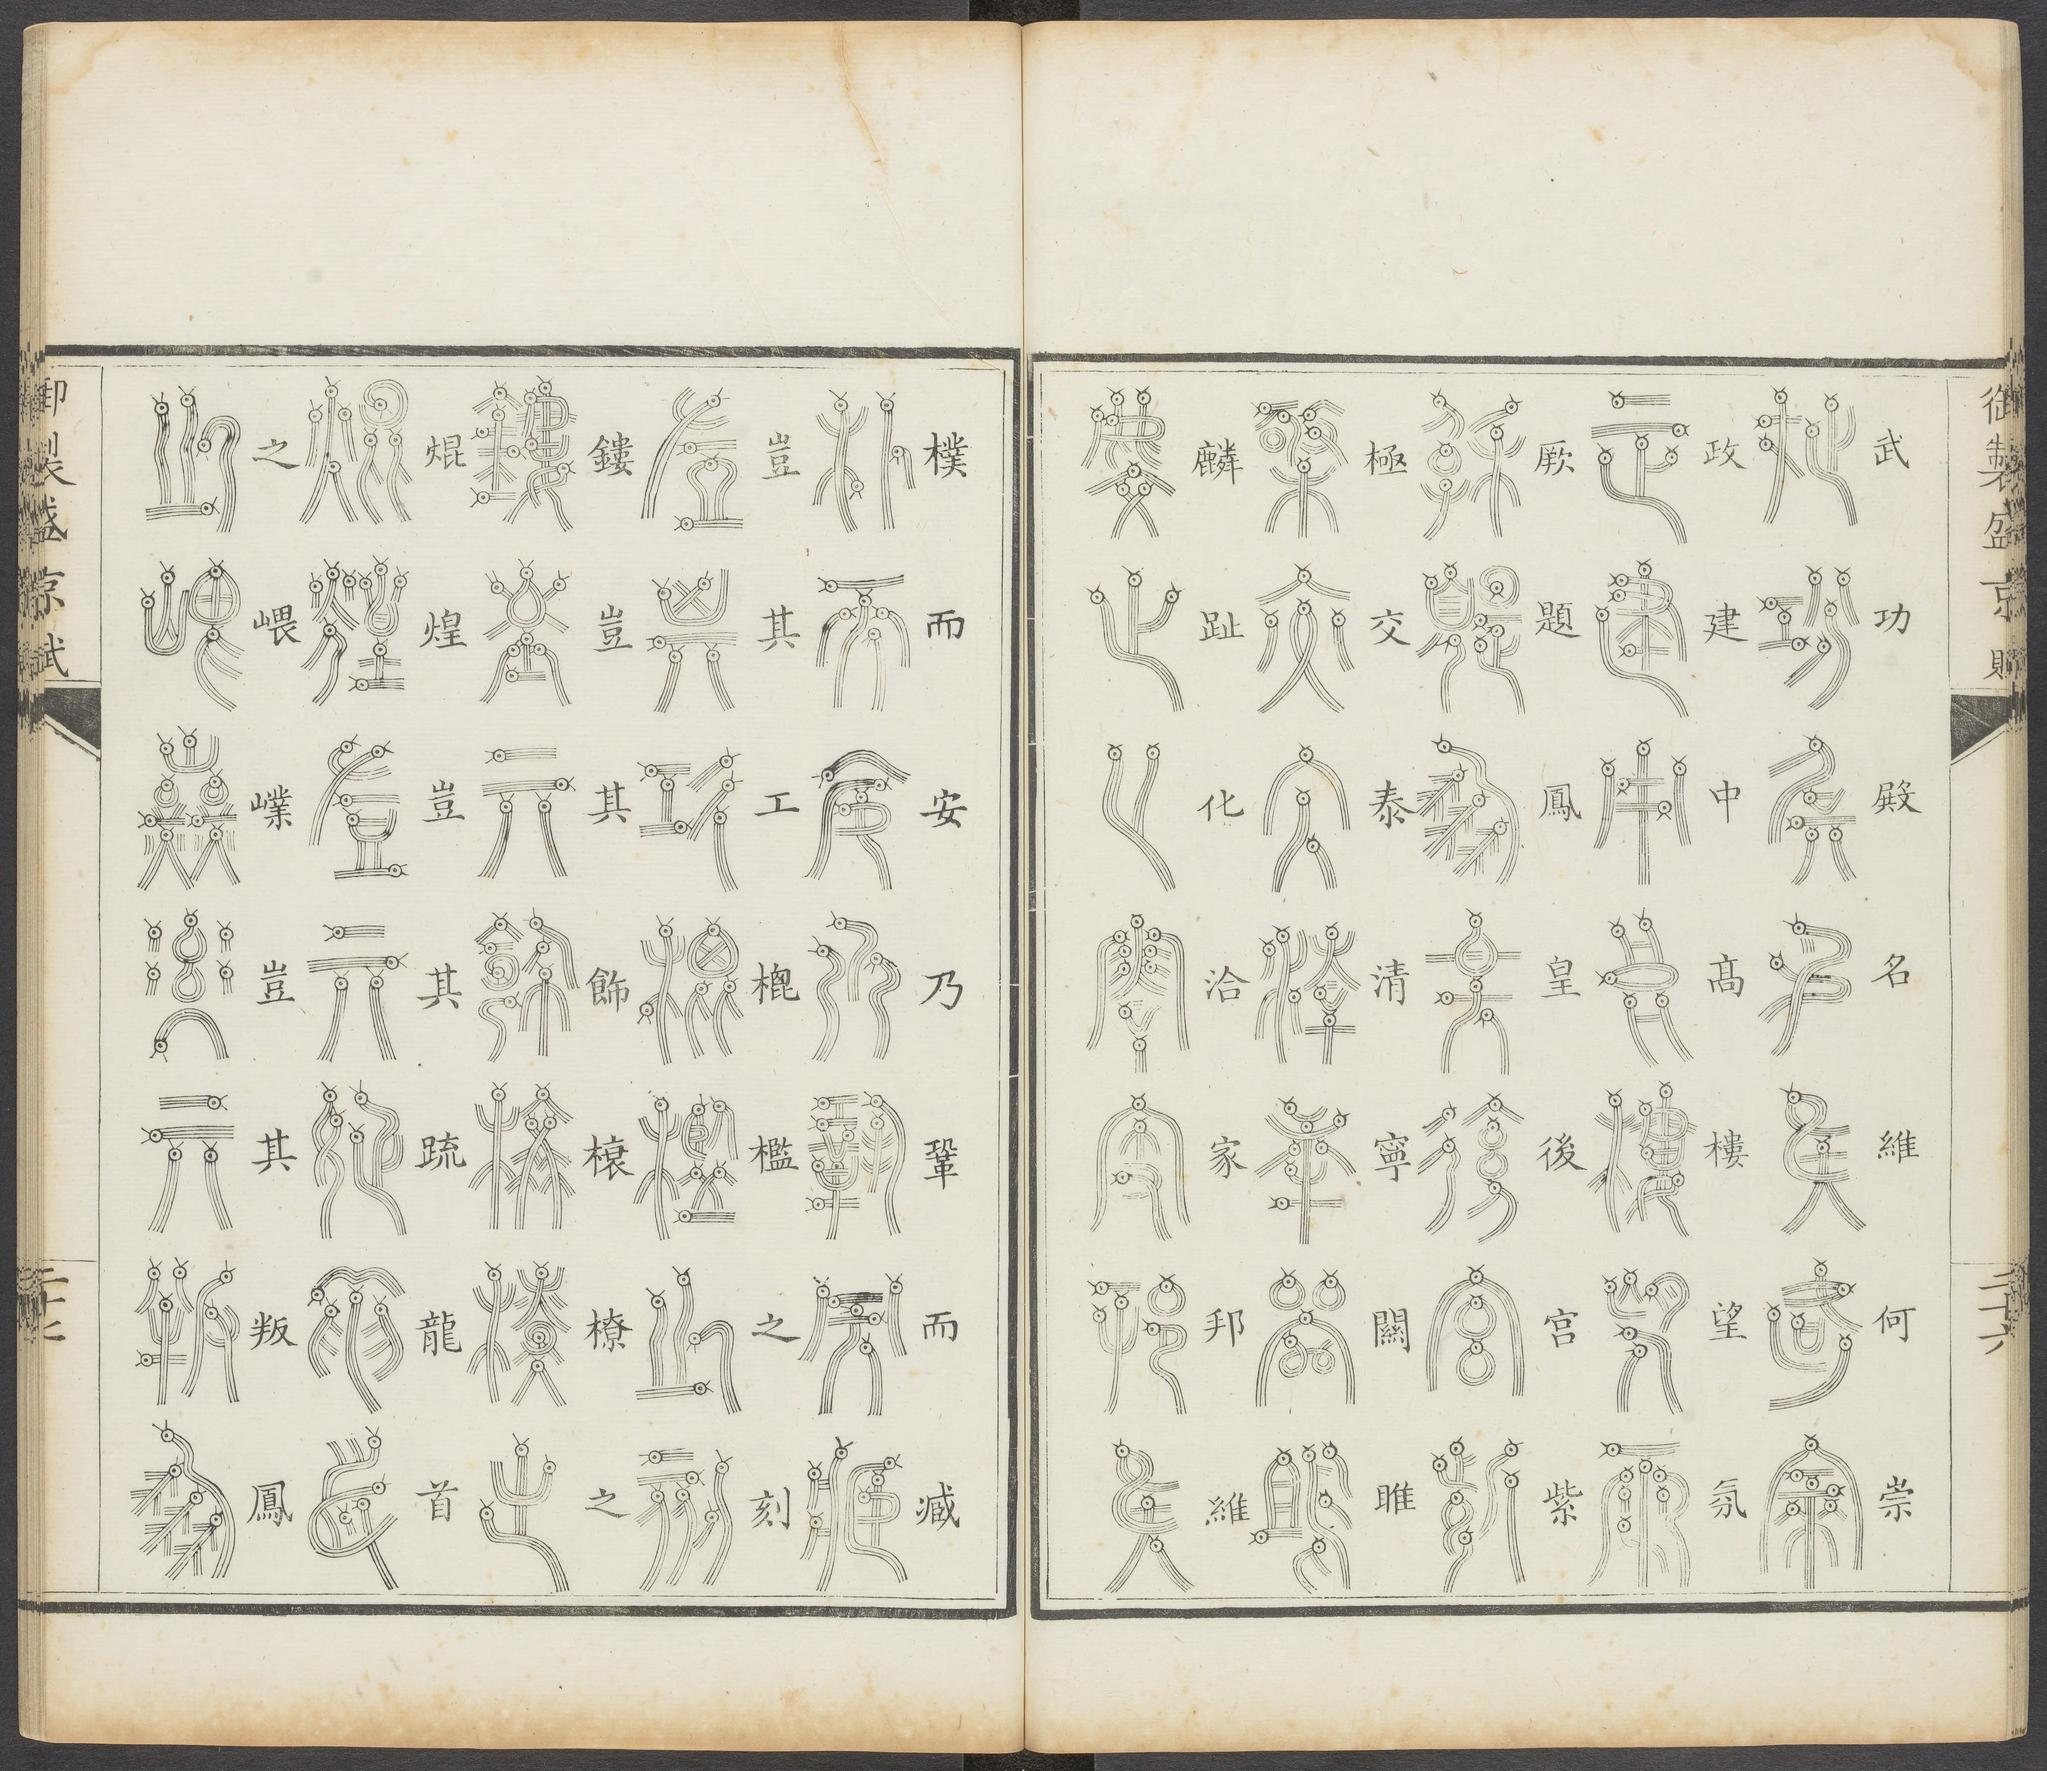 御製盛京賦
二十六
武功殿名維何崇
政建中高樓望氛
厥題鳳皇後宮紫
極交泰清寧關雎
麟趾化洽家邦維
樸而安乃鞏而臧
豈其工㮰檻之刻
鏤豈其飾榱橑之
焜煌豈其疏龍首
之嵔㠔豈其叛鳳
御製盛京賦
二十七